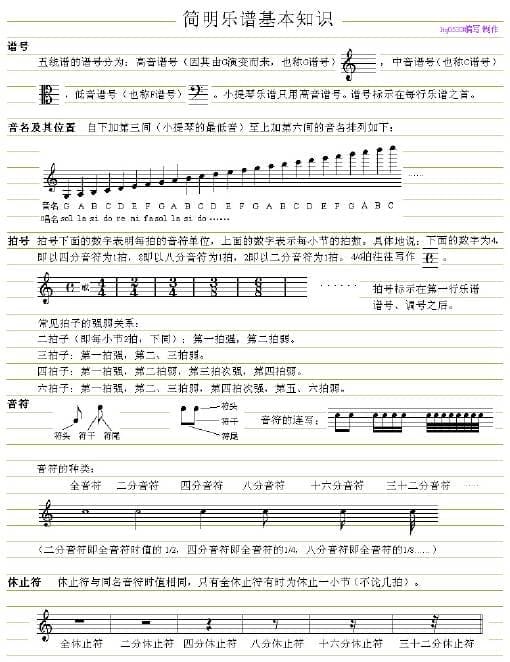 简明乐谱基本知识
编写 制作
谱号
五线谱的谱号分为：高音谱号（因其由G演变而来，也称G谱号），中音谱号（也称C谱号）
，低音谱号（也称F谱号）。小提琴乐谱只用高音谱号。谱号标示在每行乐谱之首。
音名及其位置 自下加第三间（小提琴的最低音）至上加第六间的音名排列如下：
……
音名 G A B C D E F G A B C D E F G A B C D E F G A B C
唱名 sol la si do re mi fa sol la si do ……
拍号 拍号下面的数字表明每拍的音符单位，上面的数字表示每小节的拍数。具体地说：下面的数字为4，
即以四分音符为1拍，8即以八分音符为1拍，2即以二分音符为1拍。4/4拍往往写作 C 。
C 或 4/4 2/4 3/4 3/8 6/8 …… 拍号标示在第一行乐谱
谱号、调号之后。
常见拍子的强弱关系：
二拍子（即每小节2拍，下同）：第一拍强，第二拍弱。
三拍子：第一拍强，第二、三拍弱。
四拍子：第一拍强，第二拍弱，第三拍次强，第四拍弱。
六拍子：第一拍强，第二、三拍弱，第四拍次强，第五、六拍弱。
音符
符头 符干 符尾
符头
符干
符尾
音符的连写：
音符的种类：
全音符 二分音符 四分音符 八分音符 十六分音符 三十二分音符 ……
（二分音符即全音符时值的1/2，四分音符即全音符的1/4，八分音符即全音符的1/8……）
休止符 休止符与同名音符时值相同，只有全休止符有时为休止一小节（不论几拍）。
全休止符 二分休止符 四分休止符 八分休止符 十六分休止符 三十二分休止符